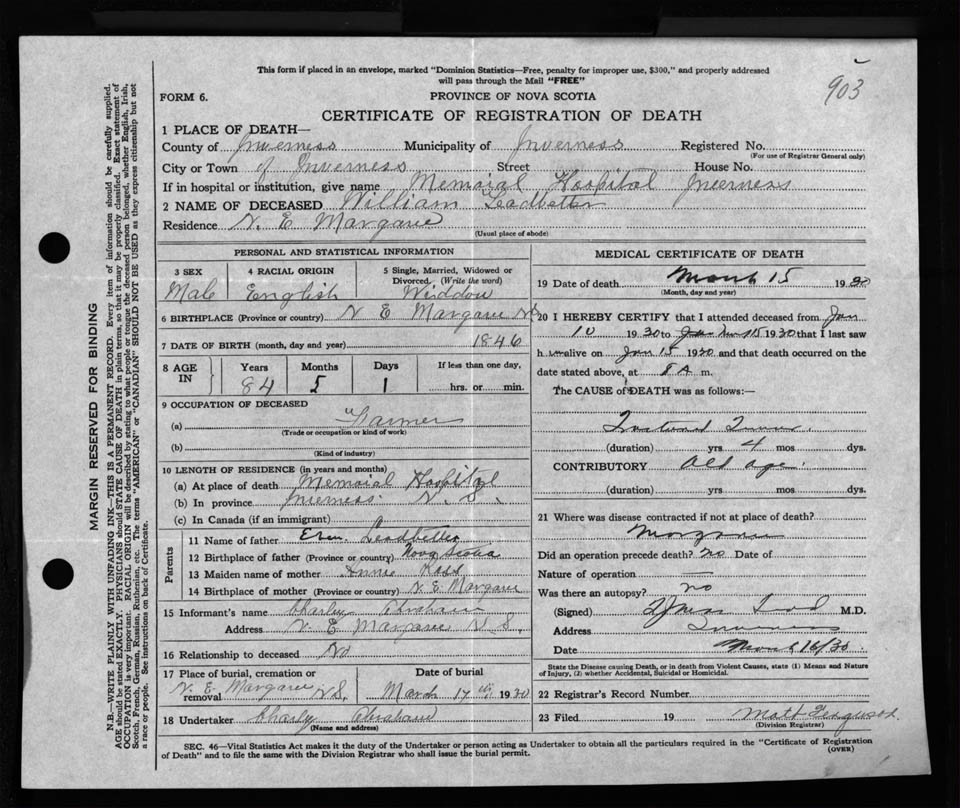 903
This form if placed in an envelope, marked "Dominion Statistics—Free, penalty for improper use, $300," and properly addressed
will pass through the Mail "FREE"
FORM 6.
PROVINCE OF NOVA SCOTIA
CERTIFICATE OF REGISTRATION OF DEATH
1 PLACE OF DEATH—
County of Inverness Municipality of Inverness Registered No.
(For use of Registrar General only)
City or Town of Inverness Street House No.
If in hospital or institution, give name Memorial Hospital Inverness
2 NAME OF DECEASED William Leadbetter
Residence N. E Margaree
(Usual place of abode)
PERSONAL AND STATISTICAL INFORMATION
3 SEX 4 RACIAL ORIGIN 5 Single, Married, Widowed or
Divorced. (Write the word)
Male English Widdow
6 BIRTHPLACE (Province or country) N E Margaree N S
7 DATE OF BIRTH (month, day and year) 1846
8 AGE IN Years Months Days If less than one day,
84 5 1 hrs. or min.
9 OCCUPATION OF DECEASED
(a) Farmer
(Trade or occupation or kind of work)
(b)
(Kind of industry)
10 LENGTH OF RESIDENCE (in years and months)
(a) At place of death Memorial Hospital
(b) In province Inverness N. S.
(c) In Canada (if an immigrant)
Parents
11 Name of father Leadbetter
12 Birthplace of father (Province or country) Nova Scotia
13 Maiden name of mother Annie Ross
14 Birthplace of mother (Province or country) N E Margaree
15 Informant's name Charley
Address N. E Margaree N. S.
16 Relationship to deceased No
17 Place of burial, cremation or removal Date of burial
N. E. Margaree N S. March 17 th 1930
18 Undertaker Charly
(Name and address)
MEDICAL CERTIFICATE OF DEATH
19 Date of death March 15 1930
(Month, day and year)
20 I HEREBY CERTIFY that I attended deceased from Jan
10 1930 to 15 1930 that I last saw
h im alive on Jan 15 1930 and that death occurred on the
date stated above, at 8 A m.
The CAUSE of DEATH was as follows:—
(duration) yrs 4 mos dys.
CONTRIBUTORY Old age.
(duration) yrs mos dys.
21 Where was disease contracted if not at place of death?
Margaree
Did an operation precede death? No Date of
Nature of operation
Was there an autopsy? no
(Signed) M.D.
Address Inverness
Date March 16/30
State the Disease Causing Death, or in death from Violent Causes, state (1) Means and Nature
of Injury, (2) whether Accidental, Suicidal or Homicidal.
22 Registrar's Record Number
23 Filed 19 Matt Ferguson
(Division Registrar)
SEC. 46—Vital Statistics Act makes it the duty of the Undertaker or person acting as Undertaker to obtain all the particulars required in the "Certificate of Registration
of Death" and to file the same with the Division Registrar who shall issue the burial permit.
(OVER)
MARGIN RESERVED FOR BINDING
N.B.—WRITE PLAINLY WITH UNFADING INK—THIS IS A PERMANENT RECORD. Every item of information should be carefully supplied.
AGE should be stated EXACTLY. PHYSICIANS should STATE CAUSE OF DEATH in plain terms, so that it may be properly classified. Exact statement of
OCCUPATION is very important. RACIAL ORIGIN will be described by stating to what people or tongue the deceased person belonged, whether English, Irish,
Scotch, French, German, Russian, Ruthenian, etc. The terms "AMERICAN" or "CANADIAN" SHOULD NOT BE USED as they express citizenship but not
a race or people. See instructions on back of Certificate.